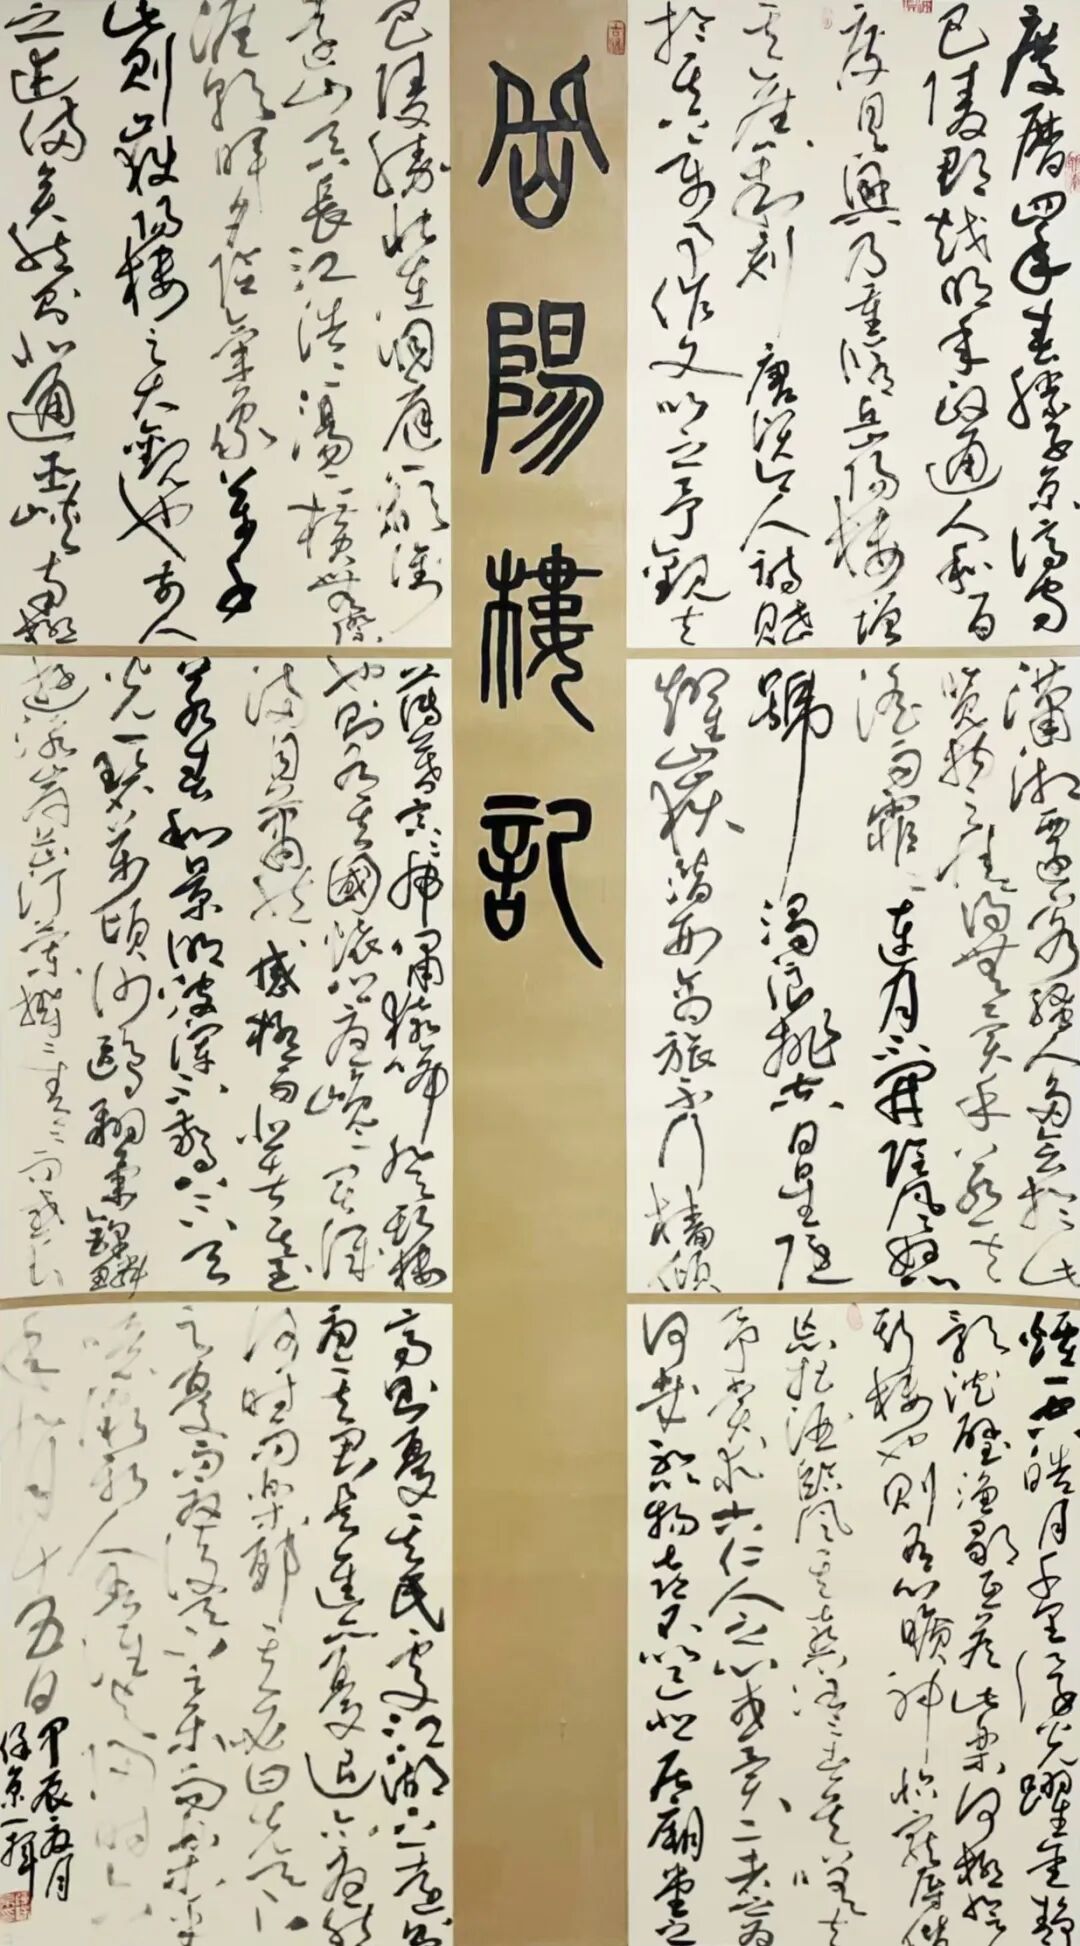 岳陽樓記
慶曆四年春滕子京謫守
巴陵郡越明年政通人和百
廢具興乃重修岳陽樓增
其舊制刻唐賢今人詩賦
於其上屬予作文以之予觀夫
巴陵勝狀在洞庭一湖銜
遠山吞長江浩浩湯湯橫無際
涯朝暉夕陰氣象萬千
此則嶽陽樓之大觀也前人
之述備矣然則北通巫峽南極
瀟湘遷客騷人多會於此
覽物之情得無異乎若夫
淫雨霏霏連月不開陰風怒
號濁浪排空日星隱
耀山嶽潛形商旅不行檣傾
薄暮冥冥虎嘯猿啼登斯樓
也則有去國懷鄉憂讒畏譏
滿目蕭然感極而悲者矣至
若春和景明波瀾不驚上下天
光一碧萬頃沙鷗翔集錦鱗
游泳岸芷汀蘭郁郁青青而或長
煙一空皓月千里浮光躍金靜
影沉璧漁歌互答此樂何極登
斯樓也則有心曠神怡寵辱偕
忘把酒臨風其喜洋洋者矣嗟夫
予嘗求古仁人之心或異二者之為
何哉不以物喜不以己悲居廟堂之
高則憂其民處江湖之遠則
憂其君是進亦憂退亦憂然則
何時而樂耶其必曰先天下
之憂而憂後天下之樂而樂乎
噫微斯人吾誰與歸時六
年九月十五日
甲辰月